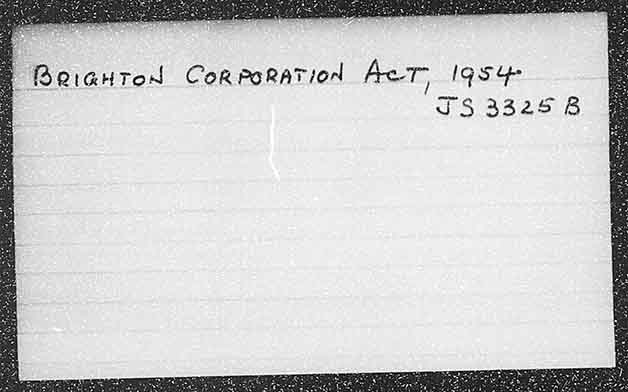 BRIGHTON CORPORATION ACT, 1954
JS 3325 B